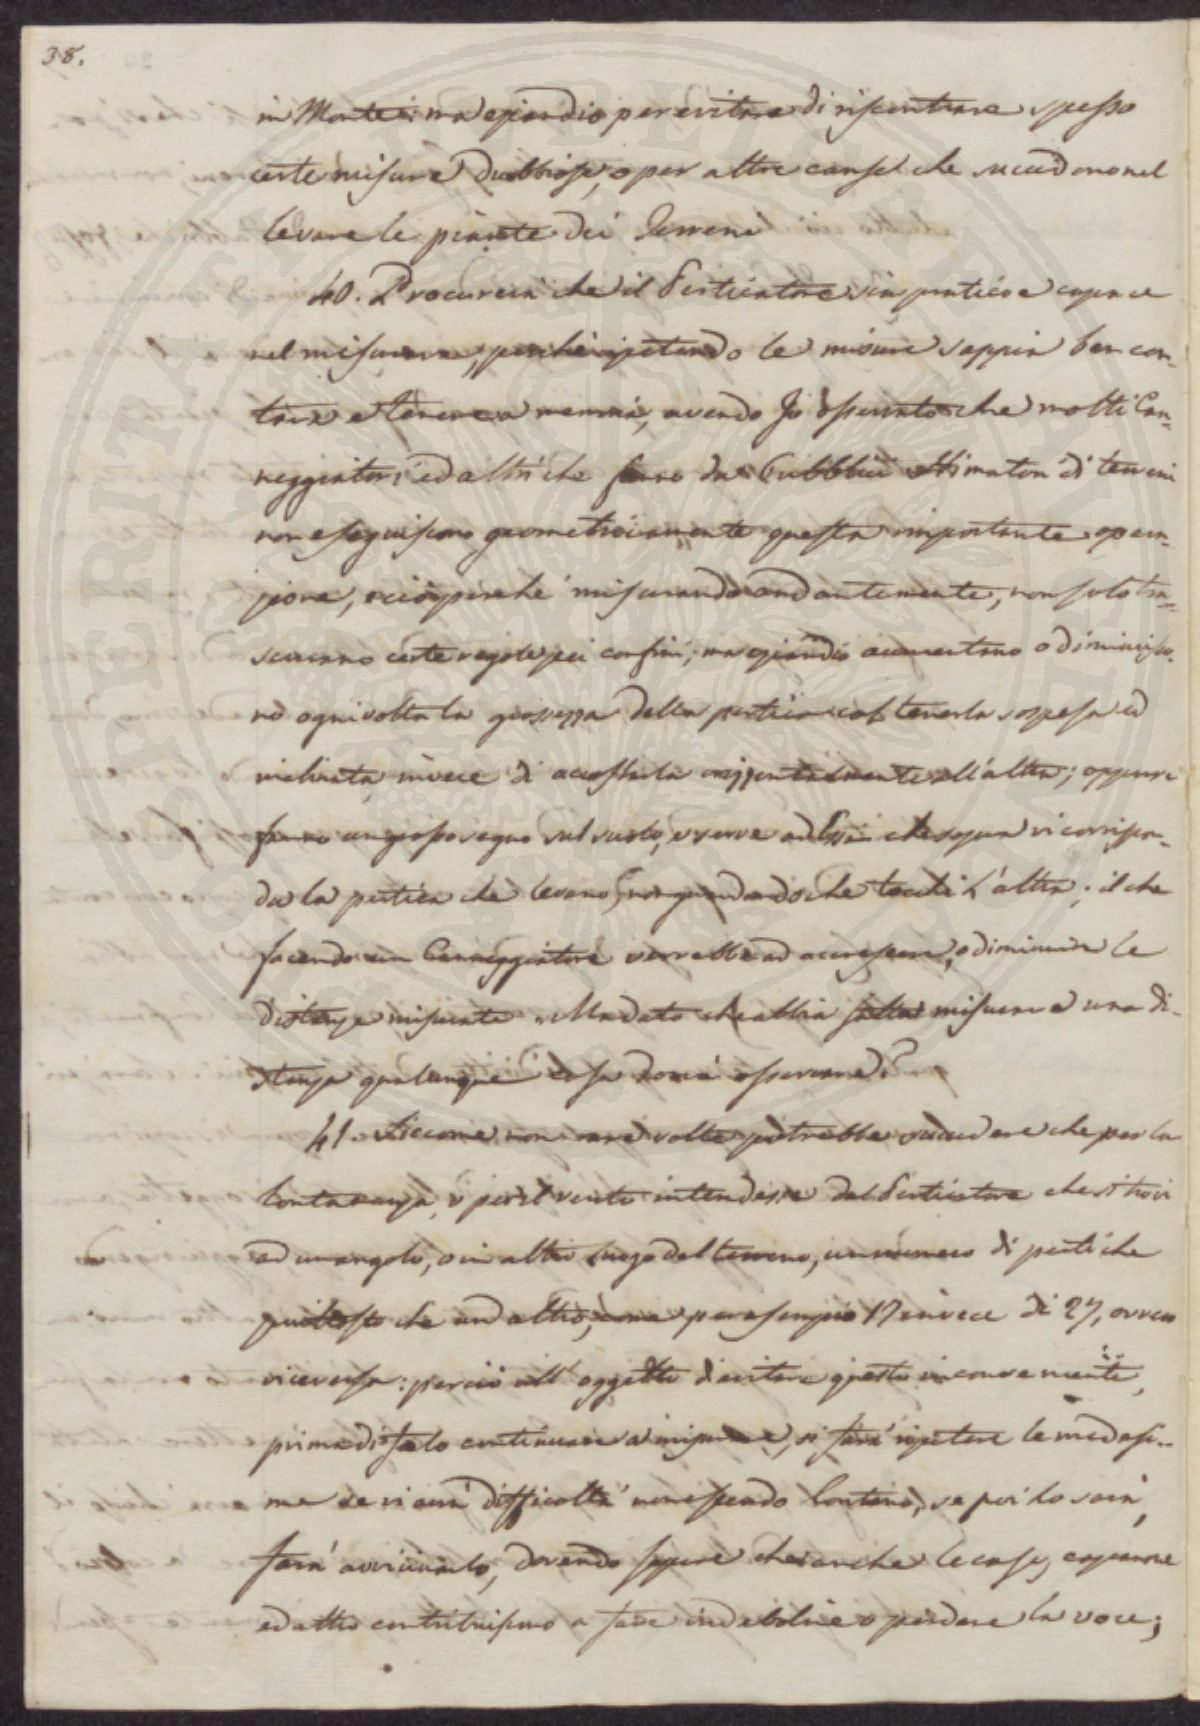 38.
in Monte: ma eziandio per evitare di riscontrare spesso
certe misure dubbiose, o per altre cause che succedono nel
levare le piante dei Terreni
40. Procurerà che il Perticatore sia pratico e capace
nel misurare, perché ripetendo le misure sappia ben con-
tare e tenere a memoria, avendo Io osservato che molti Can-
neggiatori ed altri che fanno da Pubblici Stimatori di terreni
non eseguiscono geometricamente questa importante opera-
zione, e ciò perché misurando andantemente, non solo tra-
scurano certe regole pei confini; ma eziandio aumentano o diminuisco-
no ogni volta la grossezza della pertica col tenerla sospesa ed
inclinata invece di accostarla orizzontalmente all'altra; oppure
fanno un grosso segno sul suolo, e serve ad Essi che sopra vi corrispon-
da la pertica che levano, non guardando che tocchi l'altra; il che
facendo un Canneggiatore verrebbe ad accrescere, o diminuire le
distanze misurate. Ma dato che abbia fatto misurare una di-
stanza qualunque cosa dovrà osservare?
41. Siccome non rare volte potrebbe succedere che per la
lontananza, o per il vento intendesse dal Perticatore che si trovi
ad un angolo, o in altro luogo del terreno, un numero di pertiche
piuttosto che un altro, come per esempio 17 invece di 27, ovvero
viceversa: perciò all'oggetto di evitare questo inconveniente,
prima di farlo continuare a misurare, si farà ripetere le medesi-
me se vi avrà difficoltà non essendo lontano, se poi lo sarà,
farà avvicinarlo, dovendo sapere che anche le case, capanne
ed altro contribuiscono a fare indebolire o perdere la voce;
SPERITATIS